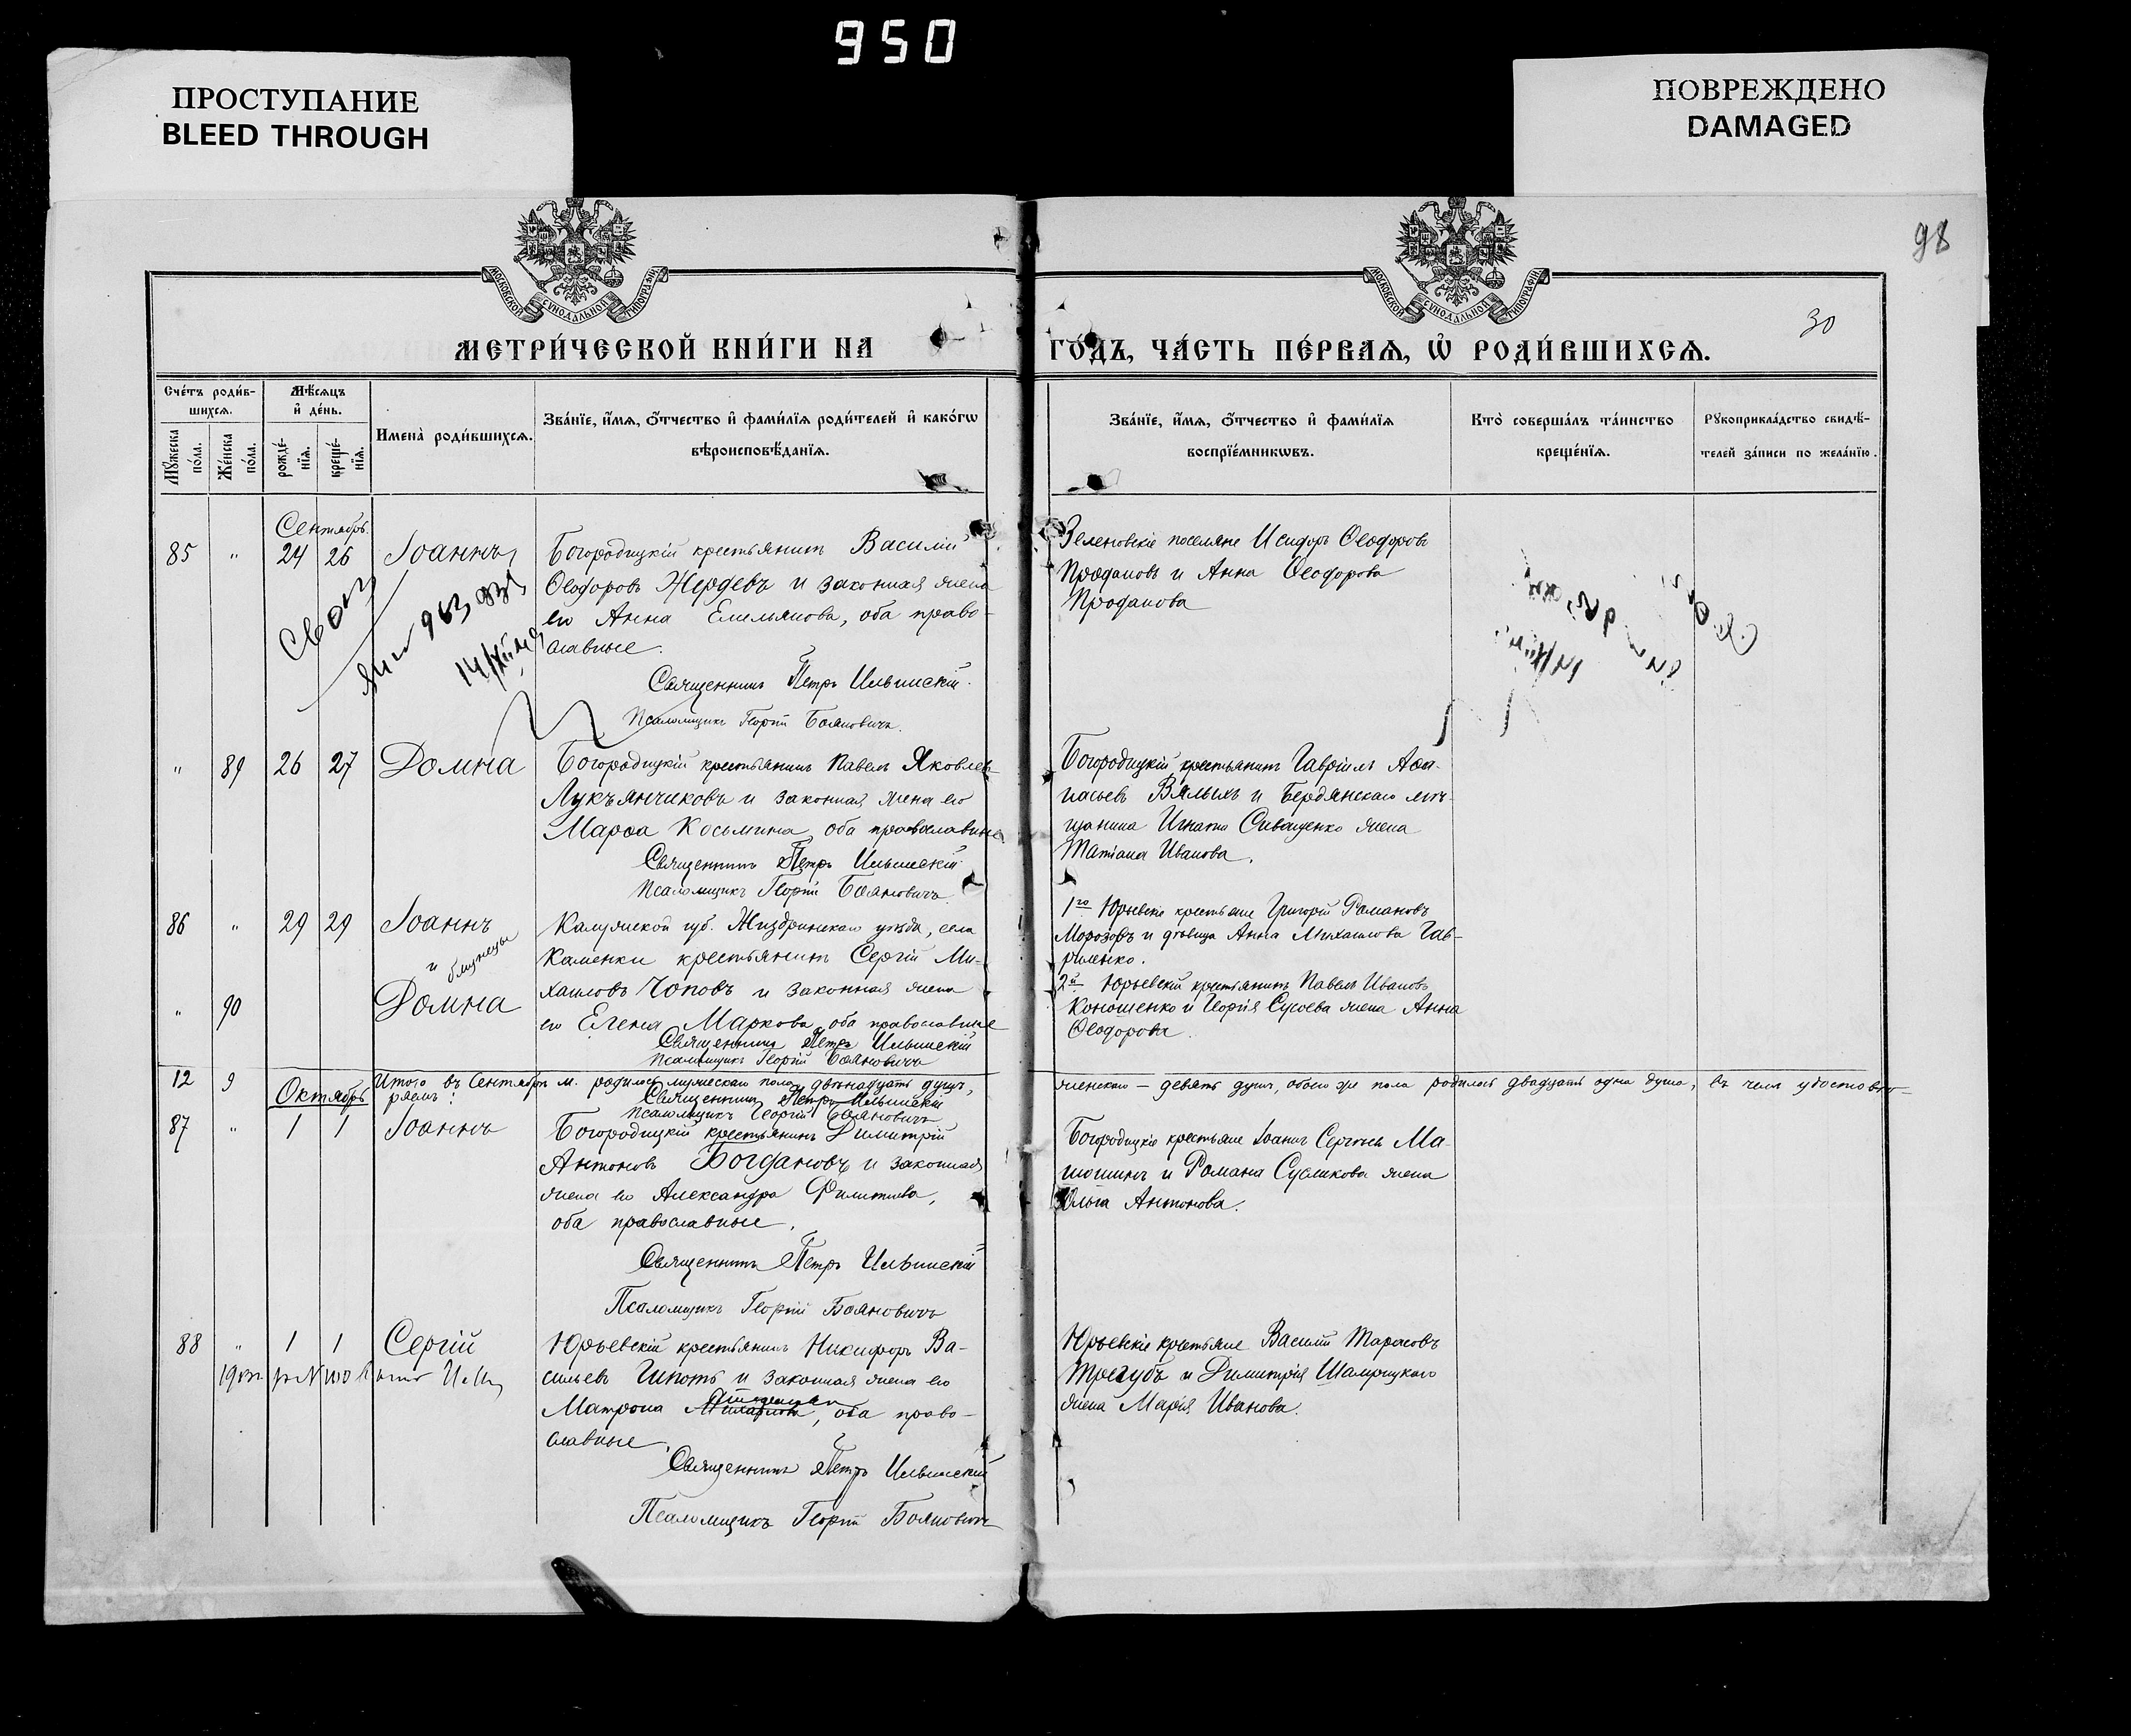 950
ПРОСТУПАНИЕ
BLEED THROUGH
ПОВРЕЖДЕНО
DAMAGED
98
МОСКОВСКОЙ СУНОДАЛЬНОЙ ТИПОГРАФІИ
МОСКОВСКОЙ СУНОДАЛЬНОЙ ТИПОГРАФІИ
30
МЕТРИ́ЧЕСКОЙ КНИ́ГИ НА
ГО́ДЪ, ЧА́СТЬ ПЕ́РВАѦ, Ѡ҆ РОДИ́ВШИХСѦ.
Сче́тъ роди́в-
шихсѧ.
Мꙋ́жеска по́ла.
Же́нска по́ла.
Мѣ́сѧцъ
и҆ де́нь.
рожде́-
нїѧ.
креще́-
нїѧ.
Имена̀ роди́вшихсѧ.
Зва́нїе, и҆́мѧ, ѻ҆́тчество и҆ фами́лїѧ роди́телей и҆ како́гѡ
вѣроисповѣ́данїѧ.
Зва́нїе, и҆́мѧ, ѻ҆́тчество и҆ фами́лїѧ
воспрїе́мникѡвъ.
Кто̀ соверша́лъ та́инство
креще́нїѧ.
Рꙋкоприкла́дство свидѣ́-
телей за́писи по жела́нїю.
Сентябрь.
85 " 24 26 Іоаннъ
Богородицкій крестьянинъ Василій
Ѳеодоровъ Жердевъ и законная жена
его Анна Емельянова, оба право-
славные.
Священникъ Петръ Ильинскій.
Псаломщикъ Георгій Бояновичъ.
Зеленовскіе поселяне Исидоръ Ѳеодоровъ
Продановъ и Анна Ѳеодорова
Проданова
963
" 89 26 27 Домна
Богородицкій крестьянинъ Павелъ Яковлев
Лукъянчиковъ и законная жена его
Марѳа Косьмина, оба православные
Священникъ Петръ Ильинскій
Псаломщикъ Георгій Бояновичъ.
Богородицкій крестьянинъ Гавріилъ Аѳа-
насьевъ Вялыхъ и Бердянскаго мѣ-
щанина Игнатія Сиващенко жена
Татіана Иванова.
86 " 29 29 Іоаннъ
и близнецы
" 90 Домна
Калужской губ. Жиздринскаго уѣзда, села
Каменки крестьянинъ Сергій Ми-
хаиловъ Чоповъ и законная жена
его Елена Маркова, оба православные
Священникъ Петръ Ильинскій
Псаломщикъ Георгій Бояновичъ
1го Юрьевскіе крестьяне Григорій Романовъ
Морозовъ и дѣвица Анна Михаилова Гав-
риленко.
2й Юрьевскій крестьянинъ Павелъ Ивановъ
Коношенко и Георгія Сусоева жена Анна
Ѳеодорова.
12 9 Итого въ Сентябрѣ м. родилось мужескаго пола двѣнадцать душъ,
женскаго — девять душъ, обоего же пола родилось двадцать одна душа, въ чемъ удостовѣ-
ряемъ:
Священникъ Петръ Ильинскій
Псаломщикъ Георгій Бояновичъ
Октябрь
87 " 1 1 Іоаннъ
Богородицкій крестьянинъ Димитрій
Антоновъ Богдановъ и законная
жена его Александра Филиппова,
оба православные.
Священникъ Петръ Ильинскій
Псаломщикъ Георгій Бояновичъ
Богородицкіе крестьяне Іоаннъ Сергѣевъ Ма-
тюшинъ и Романа Сусликова жена
Ольга Антонова.
88 " 1 1 Сергій
Юрьевскій крестьянинъ Никифоръ Ва-
сильевъ Шпотъ и законная жена его
Матрона, оба право-
славные.
Священникъ Петръ Ильинскій
Псаломщикъ Георгій Бояновичъ
Юрьевскіе крестьяне Василій Тарасовъ
Трегубъ и Димитрія Шамрицкаго
жена Марія Иванова.